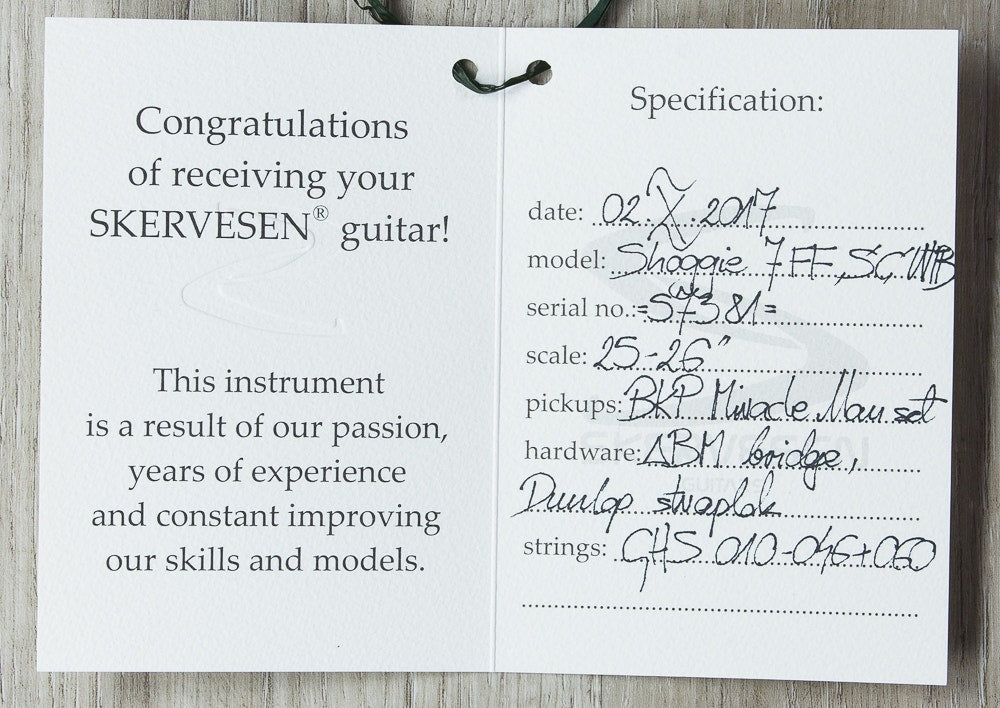 Congratulations
of receiving your
SKERVESEN® guitar!
This instrument
is a result of our passion,
years of experience
and constant improving
our skills and models.
Specification:
date: 02.X.2017
model: Shoggie 7 FF SC
serial no.:
scale: 25-26"
pickups: BKP Miracle Man set
hardware: ABM bridge,
Dunlop straplok
strings: GHS 010-046+060